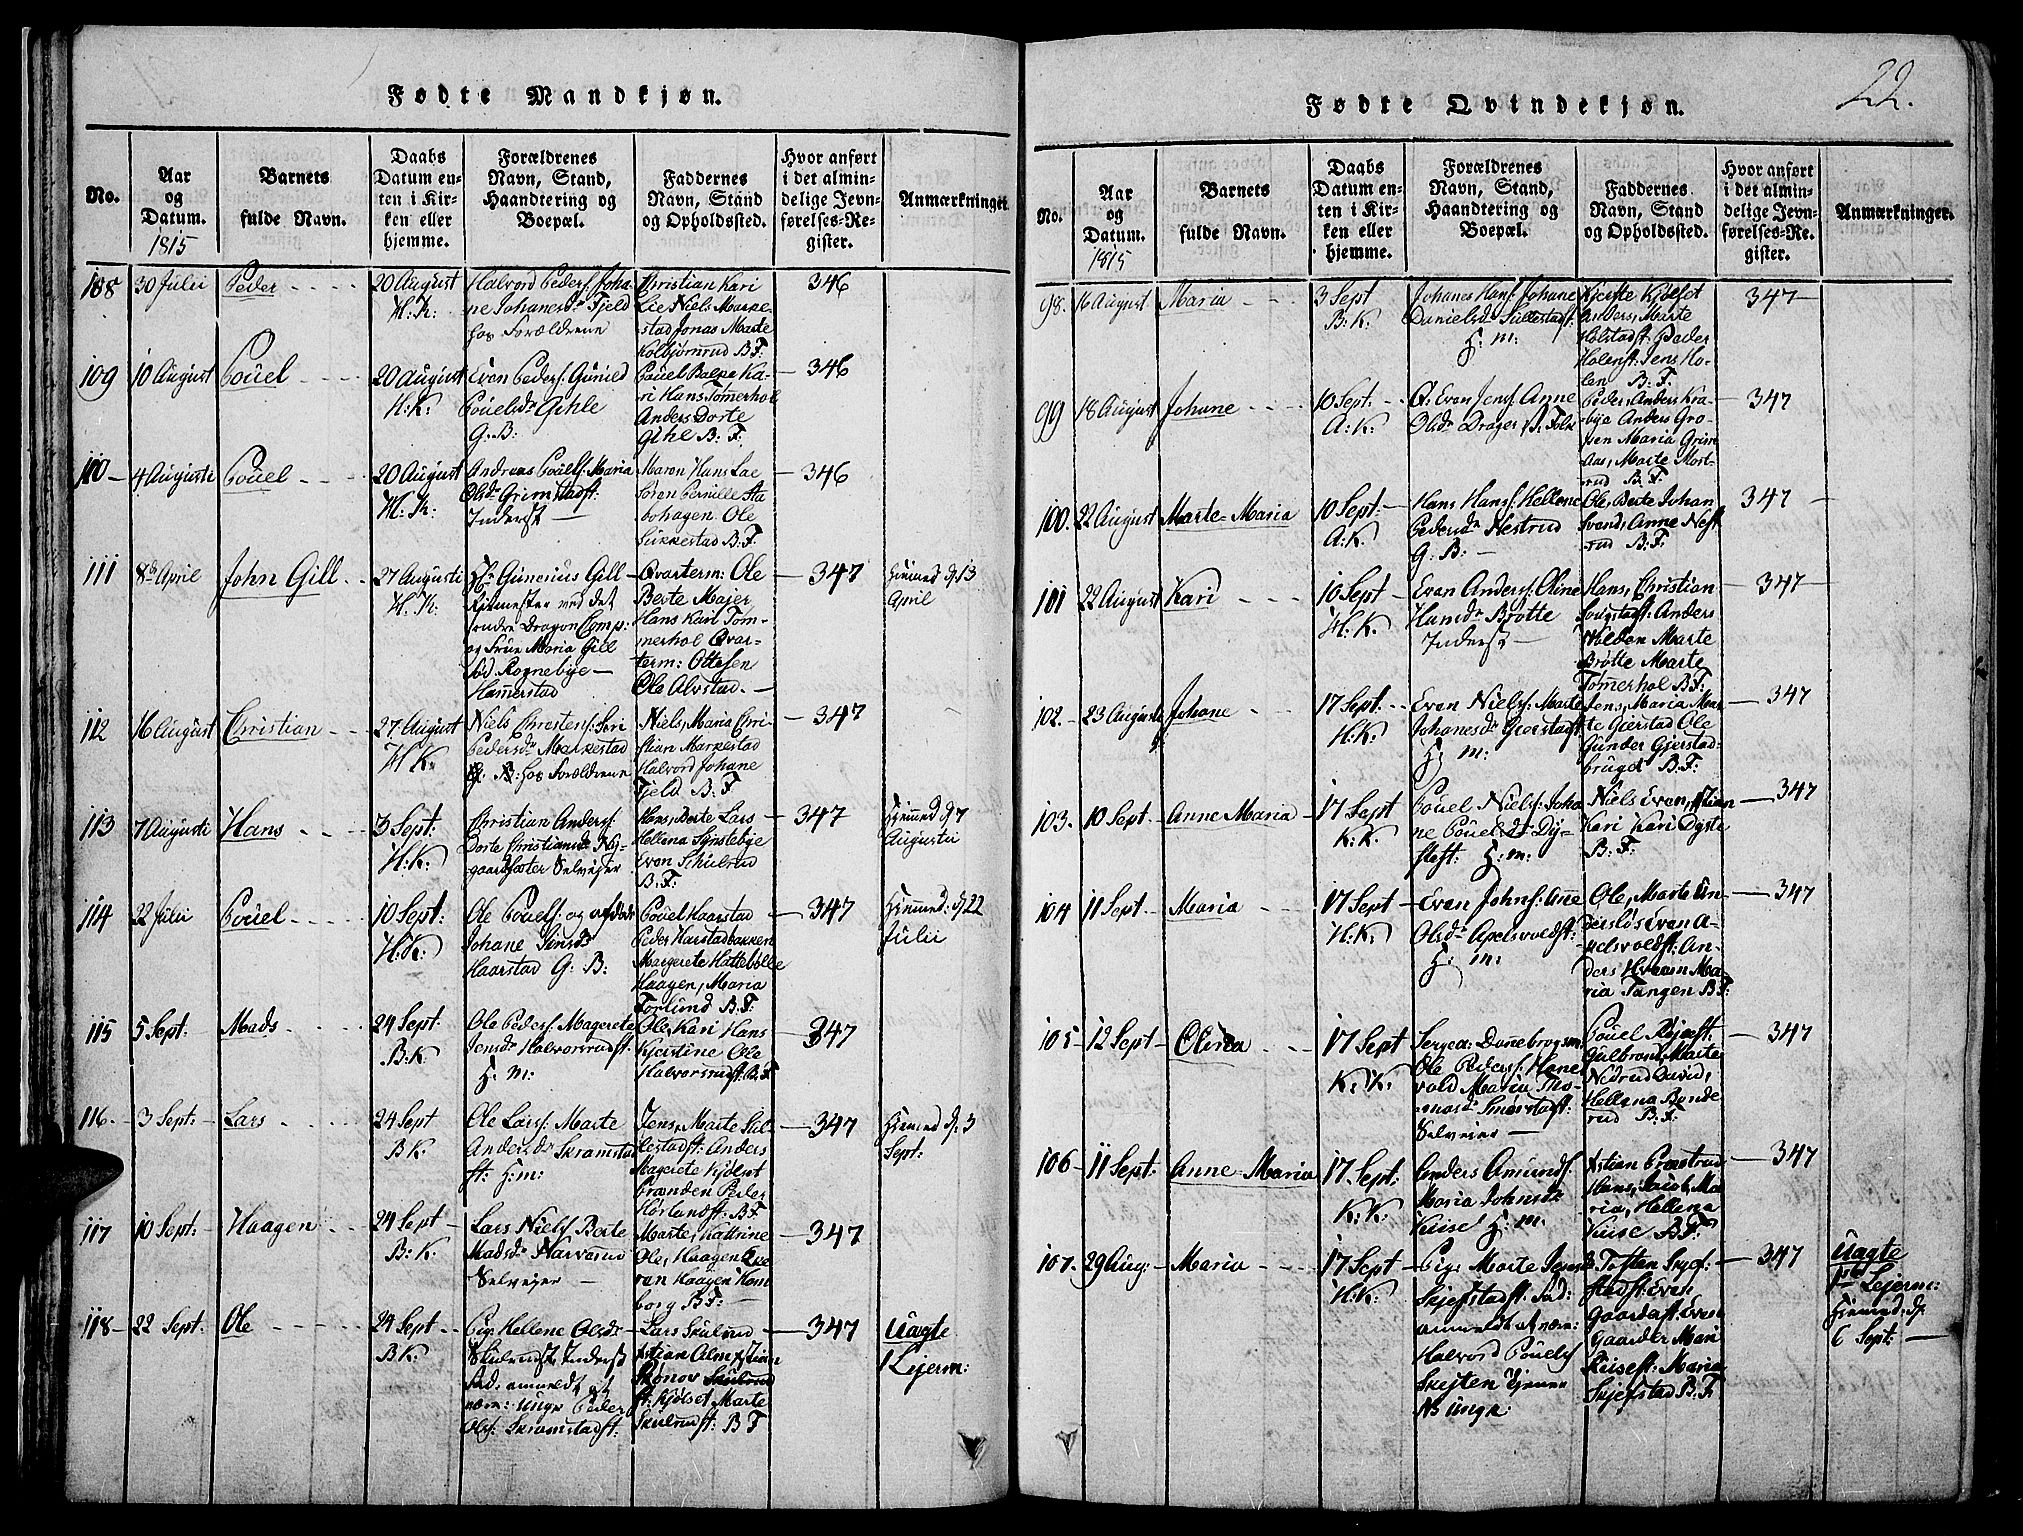 22.
Fødte Mandkjøn.
No.
Aar
og
Datum.
1815
Barnets
fulde Navn.
Daabs
Datum en-
ten i Kir-
ken eller
hjemme.
Forældrenes
Navn, Stand,
Haandtering og
Boepæl.
Faddernes
Navn, Stand
og Opholdssted.
Hvor anført
i det almin-
delige Jevn-
førelses-Re-
gister.
Anmærkninger.
108 30 Julii Peder 20 August
H: K:
Halvord Peders: Joha-
ne Johanesdr Fjeld
hos Forældrene
Christian Kari
Lie Niels Markestad Jonas Marte
Kolbjørnrud B F:
346
109 10 August Pouel 20 August
H: K:
Even Peders: Gunild
Pouelsdr Gihle
G. B:
Pouel Balke Ka-
ri Hans Tømerhol
Anders Dorte
Gihl B: F:
346
110 4 Augusti Pouel 20 August
H: K:
Andreas Pouels: Maria
Olsdr Grimstadst:
Inderst
Maren Hans Lae
Søren Pernille Sta
bohagen Ole
Sukkestad B: F:
346
111 8de April John Gill 27 Augusti
H: K:
Hr Gunerius Gill
Ritmester ved det
søndre Dragon Comp:
og Frue Maria Gill
fød Rognebye
Hamerstad
Qvarterm: Ole
Berte Majer
Hans Kari Tøm-
merhol Qvar-
term: Ottesen
Ole Alvstad.
347
Hiemed d. 13
April
112 16 August Christian 27 August
H K:
Niels Christens: Siri
Pedersdr Markestad
G: B: hos Forældrene
Niels, Maria Chri-
stian Markestad
Halvord Johane
Fjeld B: F
347
113 7 Augusti Hans 3 Sept:
H: K:
Christian Anders:
Dorte Christiansdr Ny-
gaard Selveier
Hans, Berte Lars
Hellena Synstebye
Even Schiulrud
B: F:
347
Hiemed d. 7
Augustii
114 22 Julii Pouel 10 Sept:
H: K:
Ole Pouels: og afdøde
Johane Simsdr
Haarstad G: B:
Pouel Haarstad
Peder Harstadbakken
Margrete Hattebølle
Haagen, Maria
Torlund B: F:
347
Hiemed: d. 22
Julii
115 5 Sept: Mads 24 Sept:
B: K:
Ole Peders: Magrete
Jensdr Halvorsrudst:
H: m:
Ole, Kari Hans
Kjerstine Ole
Halvorsrudst: B: F
347
116 3 Sept: Lars 24 Sept
B K:
Ole Lars: Marte
Andersdr Skramstad
st: H: m:
Jens, Marte Sil-
lestadst: Anders
Magrete Kjølset
Brænden Peder
Hørlandst: B F
347
Hiemed d: 3
Sept:
117 10 Sept: Haagen 24 Sept
B: K:
Lars Niels: Berte
Madsdr Narverud
Selveier
Marte, Kattrine
Ole, Haagen Eve
ran Haagen Ham
borg B: F:
347
118 22 Sept: Ole 24 Sept
B K:
Pige Hellene Olsdr
Skulrudst Inderst
Fad: anmeldt at
være: Ungk Peder
Ols: Skramstadst:
Lars Skulrud
Kjølset Marte
Skulrudst: B F
347
Uægte
1 Lejerm:
Fødte Qvindekjøn.
No.
Aar
og
Datum.
1815
Barnets
fulde Navn.
Daabs
Datum en-
ten i Kir-
ken eller
hjemme.
Forældrenes
Navn, Stand,
Haandtering og
Boepæl.
Faddernes
Navn, Stand
og Opholdssted.
Hvor anført
i det almin-
delige Jevn-
førelses-Re-
gister.
Anmærkninger.
98. 16 August Maria 3 Sept
B: K:
Johanes Hans: Johane
Danielsd Sillestadst:
H: m:
Kjerste Kjølset
Anders, Marte
Holstadst: Peder
Holenst: Jens Ho-
len B: F.
347
99 18 August Johane 10 Sept:
A: K:
Even Jens: Anne
Olsdr Drager
Peder, Anders Kra-
bye Anders Gro-
ven Maria Grim
Aas, Marte Most-
rud B: F:
347
100. 22 August Marte Maria 10 Sept:
A: K:
Hans Hans: Hellene
Pedersdr Nestrud
G: B:
Ole, Berte Johan
Svend, Anne Nest
rud B: F:
347
101 22 August Kari 10 Sept
H: K:
Even Anders: Oline
Hansdr Brøtte
Inderst
Hans, Christian
Anders
Marte
Brøtte Marte
Tømerhol B F:
347
102. 23 August Johane 17 Sept:
H: K:
Even Niels: Marte
Johanesdr Gierstadst
H: m:
Jens, Maria Mar
te Gierstad Ole
Gunder Gjerstad-
bruget B: F:
347
103. 10 Sept: Anne Maria 17 Sept
K: K:
Pouel Niels: Joha
ne Pouelsdr Dy-
stest: H: m:
Niels Even, Xtian
Kari Kari Dyste
B: F:
347
104 11 Sept Maria 17 Sept
H: K:
Even Johns: Anne
Olsdr Apelsvoldst:
H: m:
Ole, Marte An-
dersløs Even A-
pelsvoldst: An-
ders Hveem Ma-
ria Tangen B F:
347
105 12 Sept Olina 17 Sept
K: K:
Serjea: Danebrogsm
Ole Peders: Hane
vold Maria Tho-
masdr Smørstadst:
Selveier
Pouel
Gulbrand, Marte
Nedrud David,
Hellena Bonde
rud B: F:
347
106 11 Sept: Anne Maria 17 Sept:
K: K:
Anders Amunds:
Maria Johnsdr
Kiise H: m:
Xstian Præstrud
Hans, Jacob, Ma-
ria, Hellena
Kiise B: F:
347
107. 29 Aug: Maria 17 Sept
H: K:
Pige Marte Jensd
Skjefstadst: Fad:
anmeldt at være:
Halvord Pouels:
Skejten
Ungk:
Tosten Skjef:
stadst: Even
Gaardst: Even
Gaarder Mari
Kiisest: Maria
Skjefstad B: F
347
Uægte
1ste Lejerm:
Hiemed: d:
6 Sept: